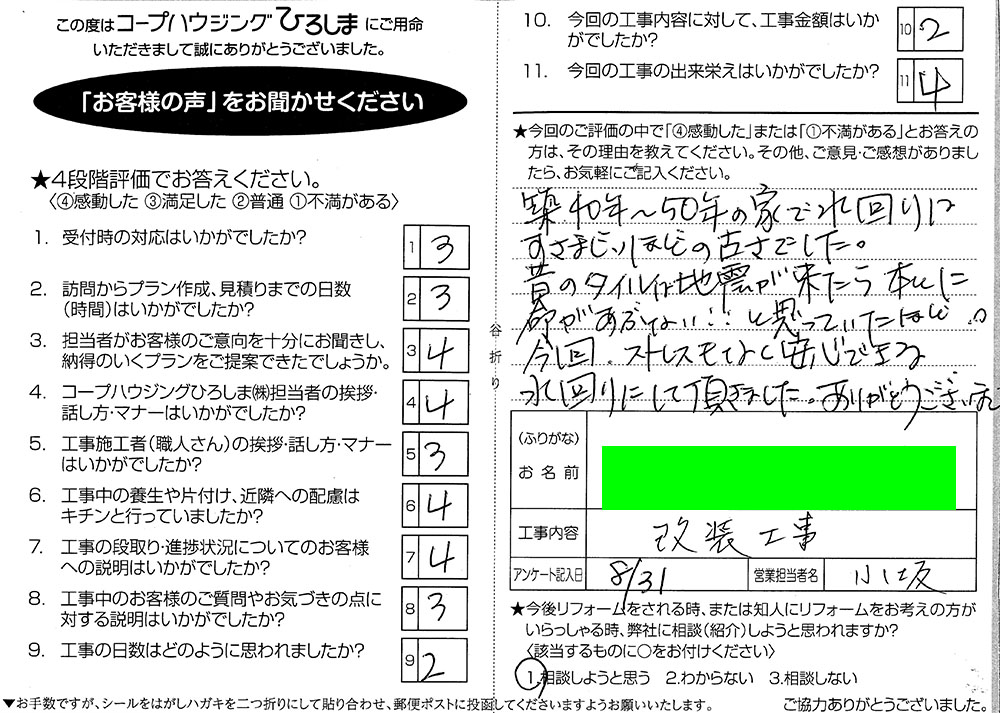 この度はコープハウジングひろしまにご用命
いただきまして誠にありがとうございました。
「お客様の声」をお聞かせください
★4段階評価でお答えください。
〈④感動した ③満足した ②普通 ①不満がある〉
1. 受付時の対応はいかがでしたか?
1 3
2. 訪問からプラン作成、見積りまでの日数
(時間)はいかがでしたか?
2 3
3. 担当者がお客様のご意向を十分にお聞きし、
納得のいくプランをご提案できたでしょうか。
3 4
4. コープハウジングひろしま㈱担当者の挨拶・
話し方・マナーはいかがでしたか?
4 4
5. 工事施工者(職人さん)の挨拶・話し方・マナー
はいかがでしたか?
5 3
6. 工事中の養生や片付け、近隣への配慮は
キチンと行っていましたか?
6 4
7. 工事の段取り・進捗状況についてのお客様
への説明はいかがでしたか?
7 4
8. 工事中のお客様のご質問やお気づきの点に
対する説明はいかがでしたか?
8 3
9. 工事の日数はどのように思われましたか?
9 2
▼お手数ですが、シールをはがしハガキを二つ折りにして貼り合わせ、郵便ポストに投函してくださいますようお願いいたします。
谷折り
10. 今回の工事内容に対して、工事金額はいか
がでしたか?
10 2
11. 今回の工事の出来栄えはいかがでしたか?
11 4
★今回のご評価の中で「④感動した」または「①不満がある」とお答えの
方は、その理由を教えてください。その他、ご意見・ご感想がありまし
たら、お気軽にご記入ください。
築40年〜50年の家で水回りは
すさまじいほどの古さでした。
昔のタイルは地震が来たら本当に
命があぶない!!と思っていたほど。
今回、ストレスもなく安心できる
水回りにして頂きました。ありがとうございました
(ふりがな)
お名前
工事内容 改装工事
アンケート記入日 8/31 営業担当者名 小坂
★今後リフォームをされる時、または知人にリフォームをお考えの方が
いらっしゃる時、弊社に相談(紹介)しようと思われますか?
〈該当するものに○をお付けください〉
1.相談しようと思う 2.わからない 3.相談しない
ご協力ありがとうございました。